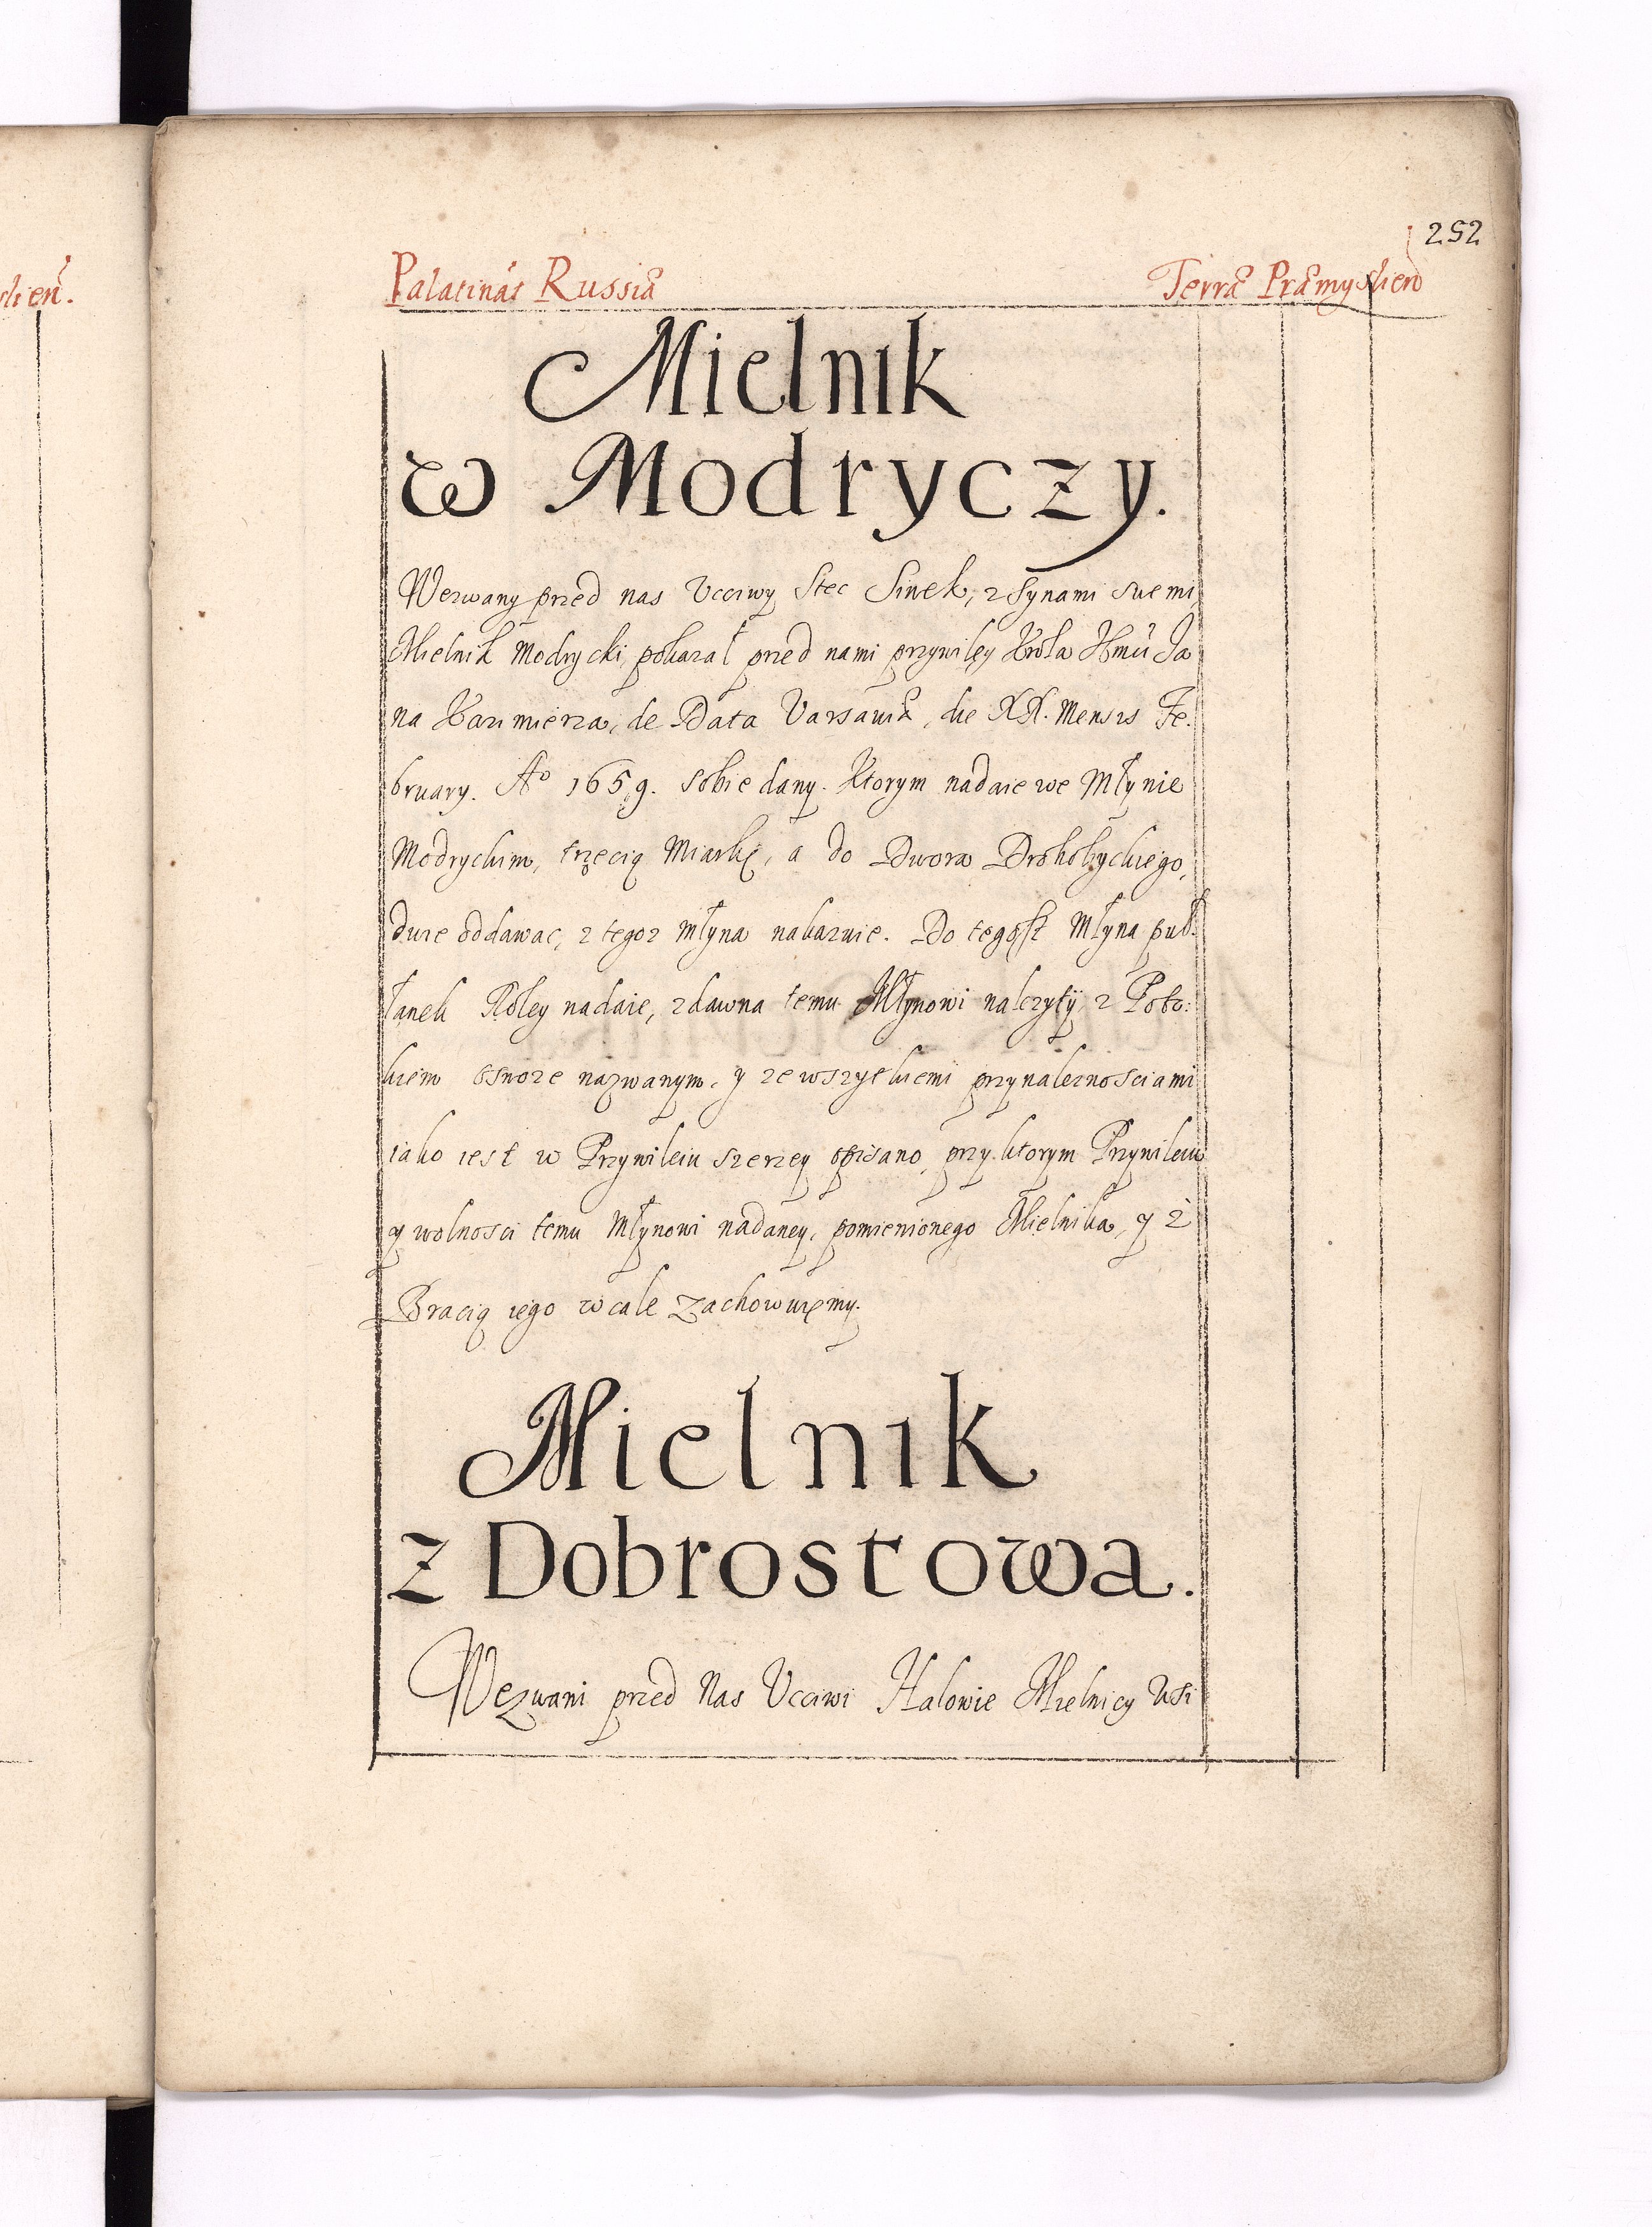 252
Palatinat Russiæ Terræ Præmyslien
Mielnik
w Modryczy.
Wezwany przed nas Uccziwy Stec Sinek, z Synami swemi,
Mielnik Modrycki, pokazał przed nami przywiley Krola Jmci Ja
na Kazimierza, de Data Varsaviæ, die XX. Mensis Fe.
bruary. Aº 1659. sobie dany. Ktorym nadaie we Młynie
Modryckim, trzecią Miarkę, a do Dwora Drohobyckiego,
dwie oddawac, z tegoz młyna nakazuie. Do tegosz Młyna puł.
łanek Roley nadaie, zdawna temu Młynowi nalezyty, z Poto:
kiem Osnoze nazwanym, y ze wszystkiemi przynaleznosciami
iako iest w Przywileiu szerzey opisano, przy ktorym Przywileiu
y wolnosci temu Młynowi nadaney, pomienionego Mielnika, y z
Bracią iego wcale zachowuięmy.
Mielnik
z Dobrostowa.
Wezwani przed Nas Uccziwi Halowie Mielnicy Wsi
slien.